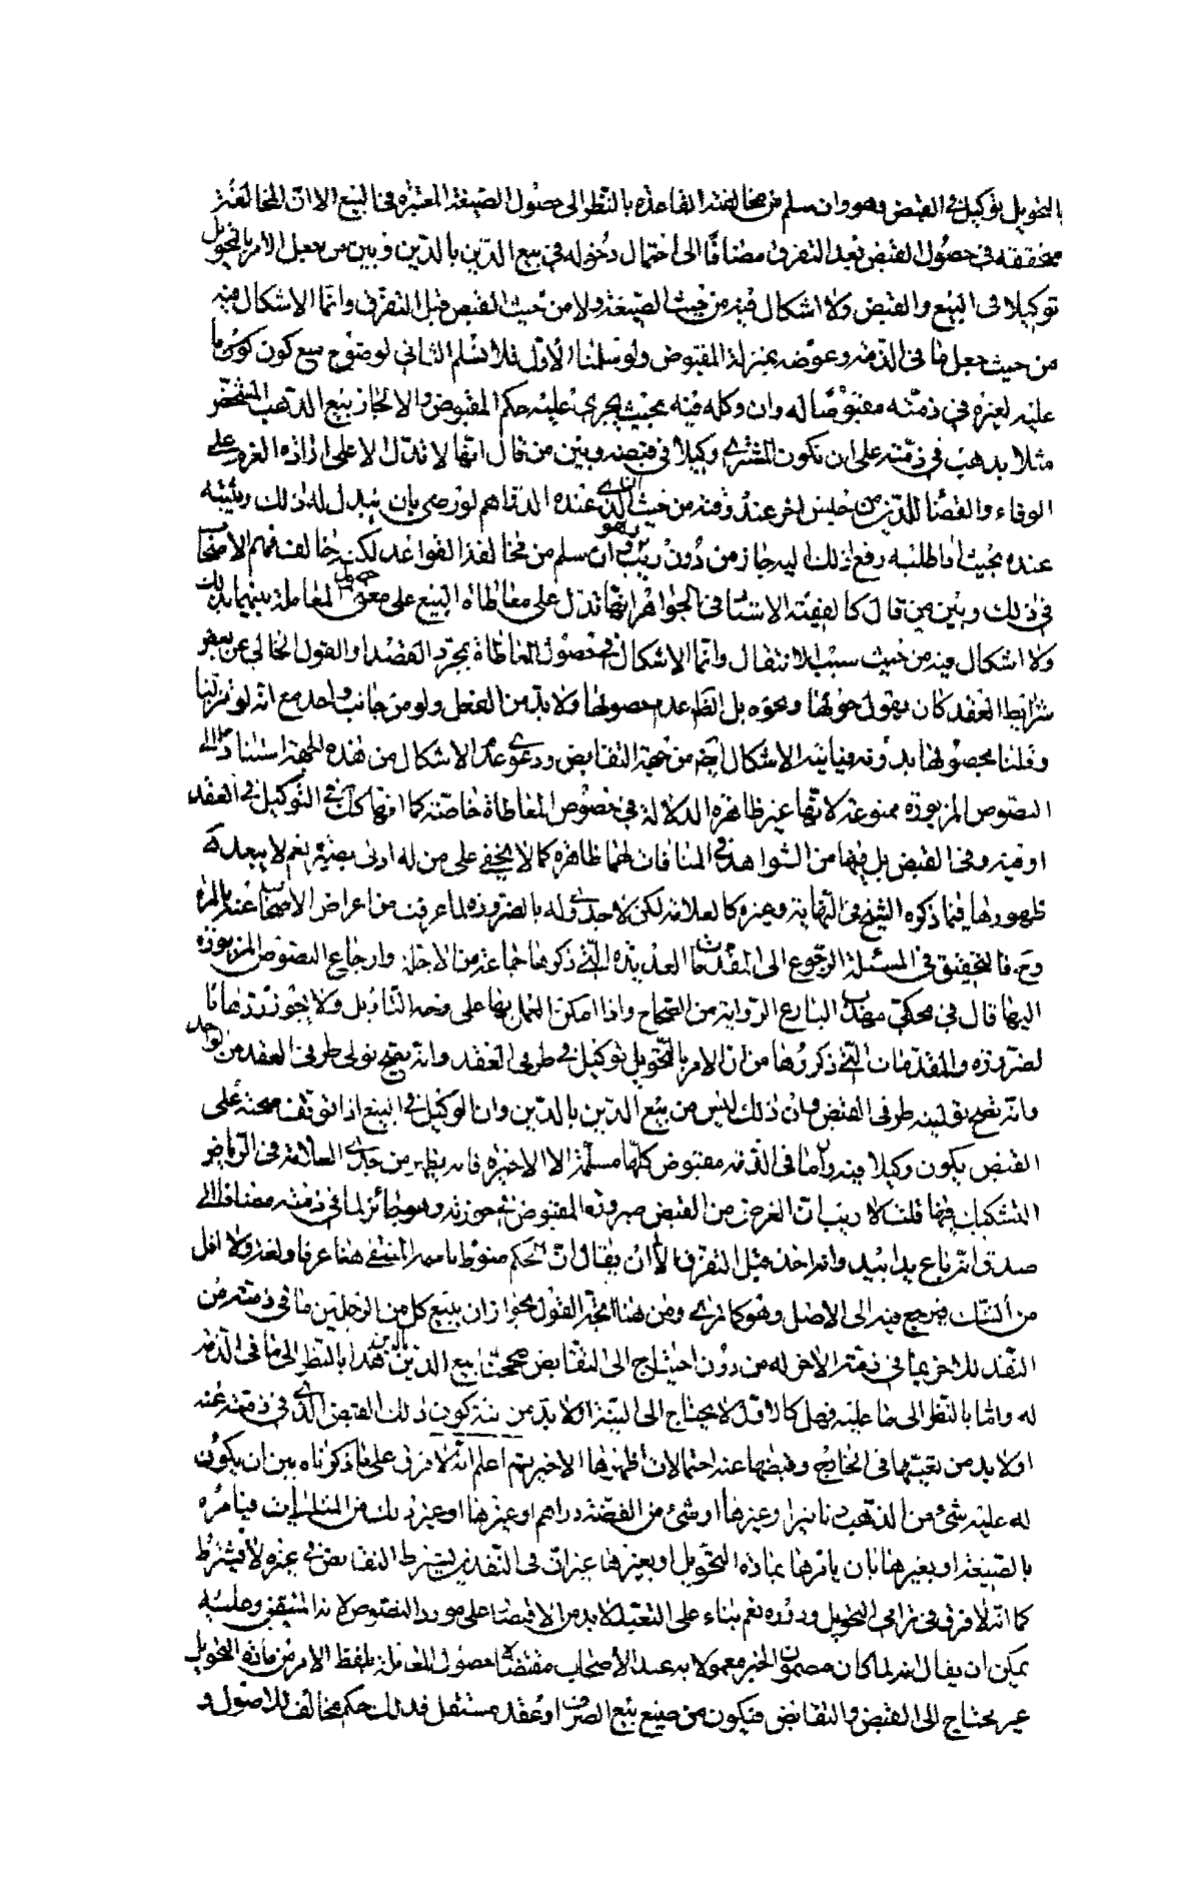 بالتحويل توكيل في القبض وهو وان سلم من مخالفته القاعدة بالنظر الى حصول الصيغة المعتبرة في البيع الا ان المخالفة
متحققة في حصول القبض بعد التفرق مضافا الى احتمال دخوله في بيع الدين بالدين وبين من يجعل الامر بالتحويل
توكيلا في البيع والقبض ولا اشكال فيه من حيث الصيغة ولا من حيث القبض قبل التفرق وانما الاشكال فيه
من حيث جعل ما في الذمة وعوضه بمنزلة المقبوض ولو سلمنا الاول فلا نسلم الثاني لوضوح منع كون ما
عليه لغيره في ذمته مقبوضا له وان وكله فيه بحيث يجرى عليه حكم المقبوض والا لجاز بيع الذهب المشخص
مثلا بذهب في ذمته على ان يكون المشترى وكيلا في قبضه وبين من قال انها لا تدل الا على ارادة العزم على
الوفاء والقضاء للدين من جنس اخر عنده وقته من حيث ان الذي عنده الدراهم لو رضي بان يبدل له ذلك ويثبته
عنده بحيث اذا طلبه دفع ذلك اليه جاز من دون ريب وهو وان سلم من مخالفة القواعد لكنه خالف فهم الاصحاب
في ذلك وبين من قال كالفقيه الاستاد في الجواهر انها تدل على معاطاة البيع على معنى حصول المعاملة بينهما بذلك
ولا اشكال فيه من حيث سبب الانتقال وانما الاشكال في حصول المعاطاة بمجرد القصد او القول الخالي عن بعض
شرايط العقد كان يقول حولها ونحوه بل الظ عدم حصولها ولا بد من الفعل ولو من جانب واحد مع انه لو تنزلنا
وقلنا بحصولها بدونه فيأتيه الاشكال ايضا من جهة التقابض ودعوى عدم الاشكال من هذه الجهة استنادا الى
النصوص المزبورة ممنوعة لانها غير ظاهرة الدلالة في خصوص المعاطاة خاصة كما انها كك في التوكيل في العقد
او فيه وفي القبض بل فيها من الشواهد في المنافات لهما ظاهرة كما لا يخفى على من له ادنى بصيرة نعم لا يبعد
ظهورها فيما ذكره الشيخ في النهاية وغيره كالعلامة لكن لا جدوى له بالضرورة لما عرفت من اعراض الاصحاب عنه بالمرة
وح فالتحقيق في المسئلة الرجوع الى المقدمات العديدة التي ذكرها جماعة من الاجلة وارجاع النصوص المزبورة
اليها قال في محكي مهذب البارع الرواية من الصحاح واذا امكن العمل بها على وجه التاويل ولا يجوز ردها
لضرورة والمقدمات التي ذكروها من ان الامر بالتحويل توكيل في طرفي العقد وانه يصح تولى طرفي العقد من الواحد
وانه يصح توليته طرفي القبض وان ذلك ليس من بيع الدين بالدين وان الوكيل في البيع اذا توقف صحته على
القبض يكون وكيلا فيه وان ما في الذمة مقبوض كلها مسلمة الا الاخيرة فانه يظهر من جدى العلامة في الرياض
التشكيك فيها قلت لا ريب ان الغرض من القبض صيرورة المقبوض في حوزته وهو حائز لما في ذمته مضافا الى
صدق انه باع يدا بيد وانه اخذ قبل التفرق الا ان يقال ان الحكم منوط بامر انتفى هنا عرفا ولغة ولا اقل
من الشك فيرجع فيه الى الاصل وهو كما ترى ومن هنا اتجه القول بجواز ان يبيع كل من الرجلين ما في ذمته من
النقد للاخر بما في ذمة الاخر له من دون احتياج الى التقابض صححنا بيع الدين بالدين هذا بالنظر الى ما في الذمة
له واما بالنظر الى ما عليه فهل كالاول لا يحتاج الى النية او لا بد من نية كون ذلك القبض الذي في ذمته عنه
او لا بد من تعيينها في الخارج وقبضها عنه احتمالات اظهرها الاخير ثم اعلم انه لا فرق على ما ذكرناه بين ان يكون
له عليه شئ من الذهب دنانيرا وغيرها او شئ من الفضة دراهم او غيرها او غير ذلك من المثليات فيأمره
بالصيغة او بغيرها بان يامرها بمادة التحويل او بغيرها غير ان في النقدين يشترط التقابض وفي غيره لا يشترط
كما انه لا فرق في ترامى التحويل ودوره نعم بناء على التعبد لا بد من الاقتصار على مورد النصوص لانه المتيقن وعليه
يمكن ان يقال انه لما كان مضمون الخبر معمولا به عند الاصحاب مقتضاه حصول المعاملة بلفظ الامر من مادة التحويل
غير محتاج الى القبض والتقابض فيكون من صيغ بيع الصرف او عقد مستقل فذلك حكم مخالف للاصول و